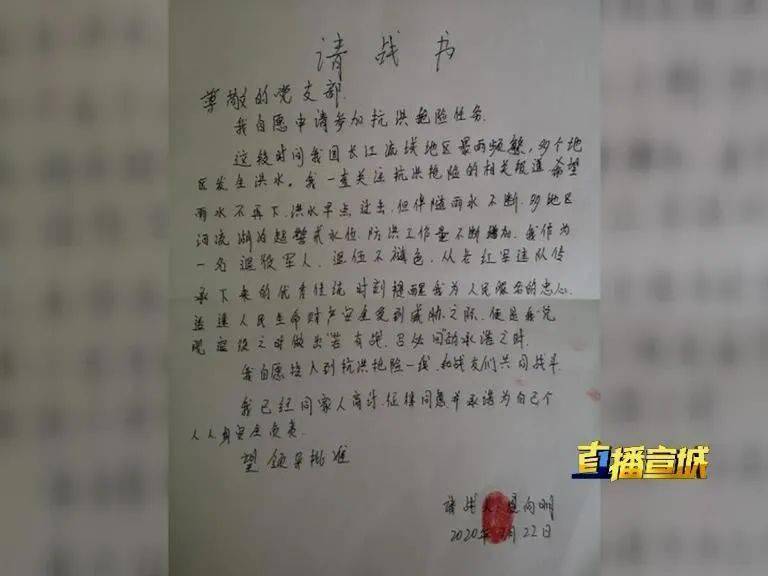 请战书
尊敬的党支部
我自愿申请参加抗洪抢险任务.
这段时间我国长江流域地区暴雨频繁,多个地
区发生洪水。我一直关注抗洪抢险的相关报道希望
雨水不再下.洪水早点过去.但伴随雨水不断.多地区
河流湖泊超警戒水位.防洪工作量不断增加.我作为
一名退役军人.退伍不褪色.从老红军连队传
承下来的优秀传统时刻提醒我为人民服务的忠心.
人民生命财产安全受到威胁之际.便是我兑
现退役之时做出"若有战.召必回"的承诺之时.
我自愿投入到抗洪抢险一线.和战友们共同战斗.
我已经同家人商讨.征得同意并承诺为自己个
人人身安全负责.
望领导批准
请战人:向明
2020年7月22日
直播宣城